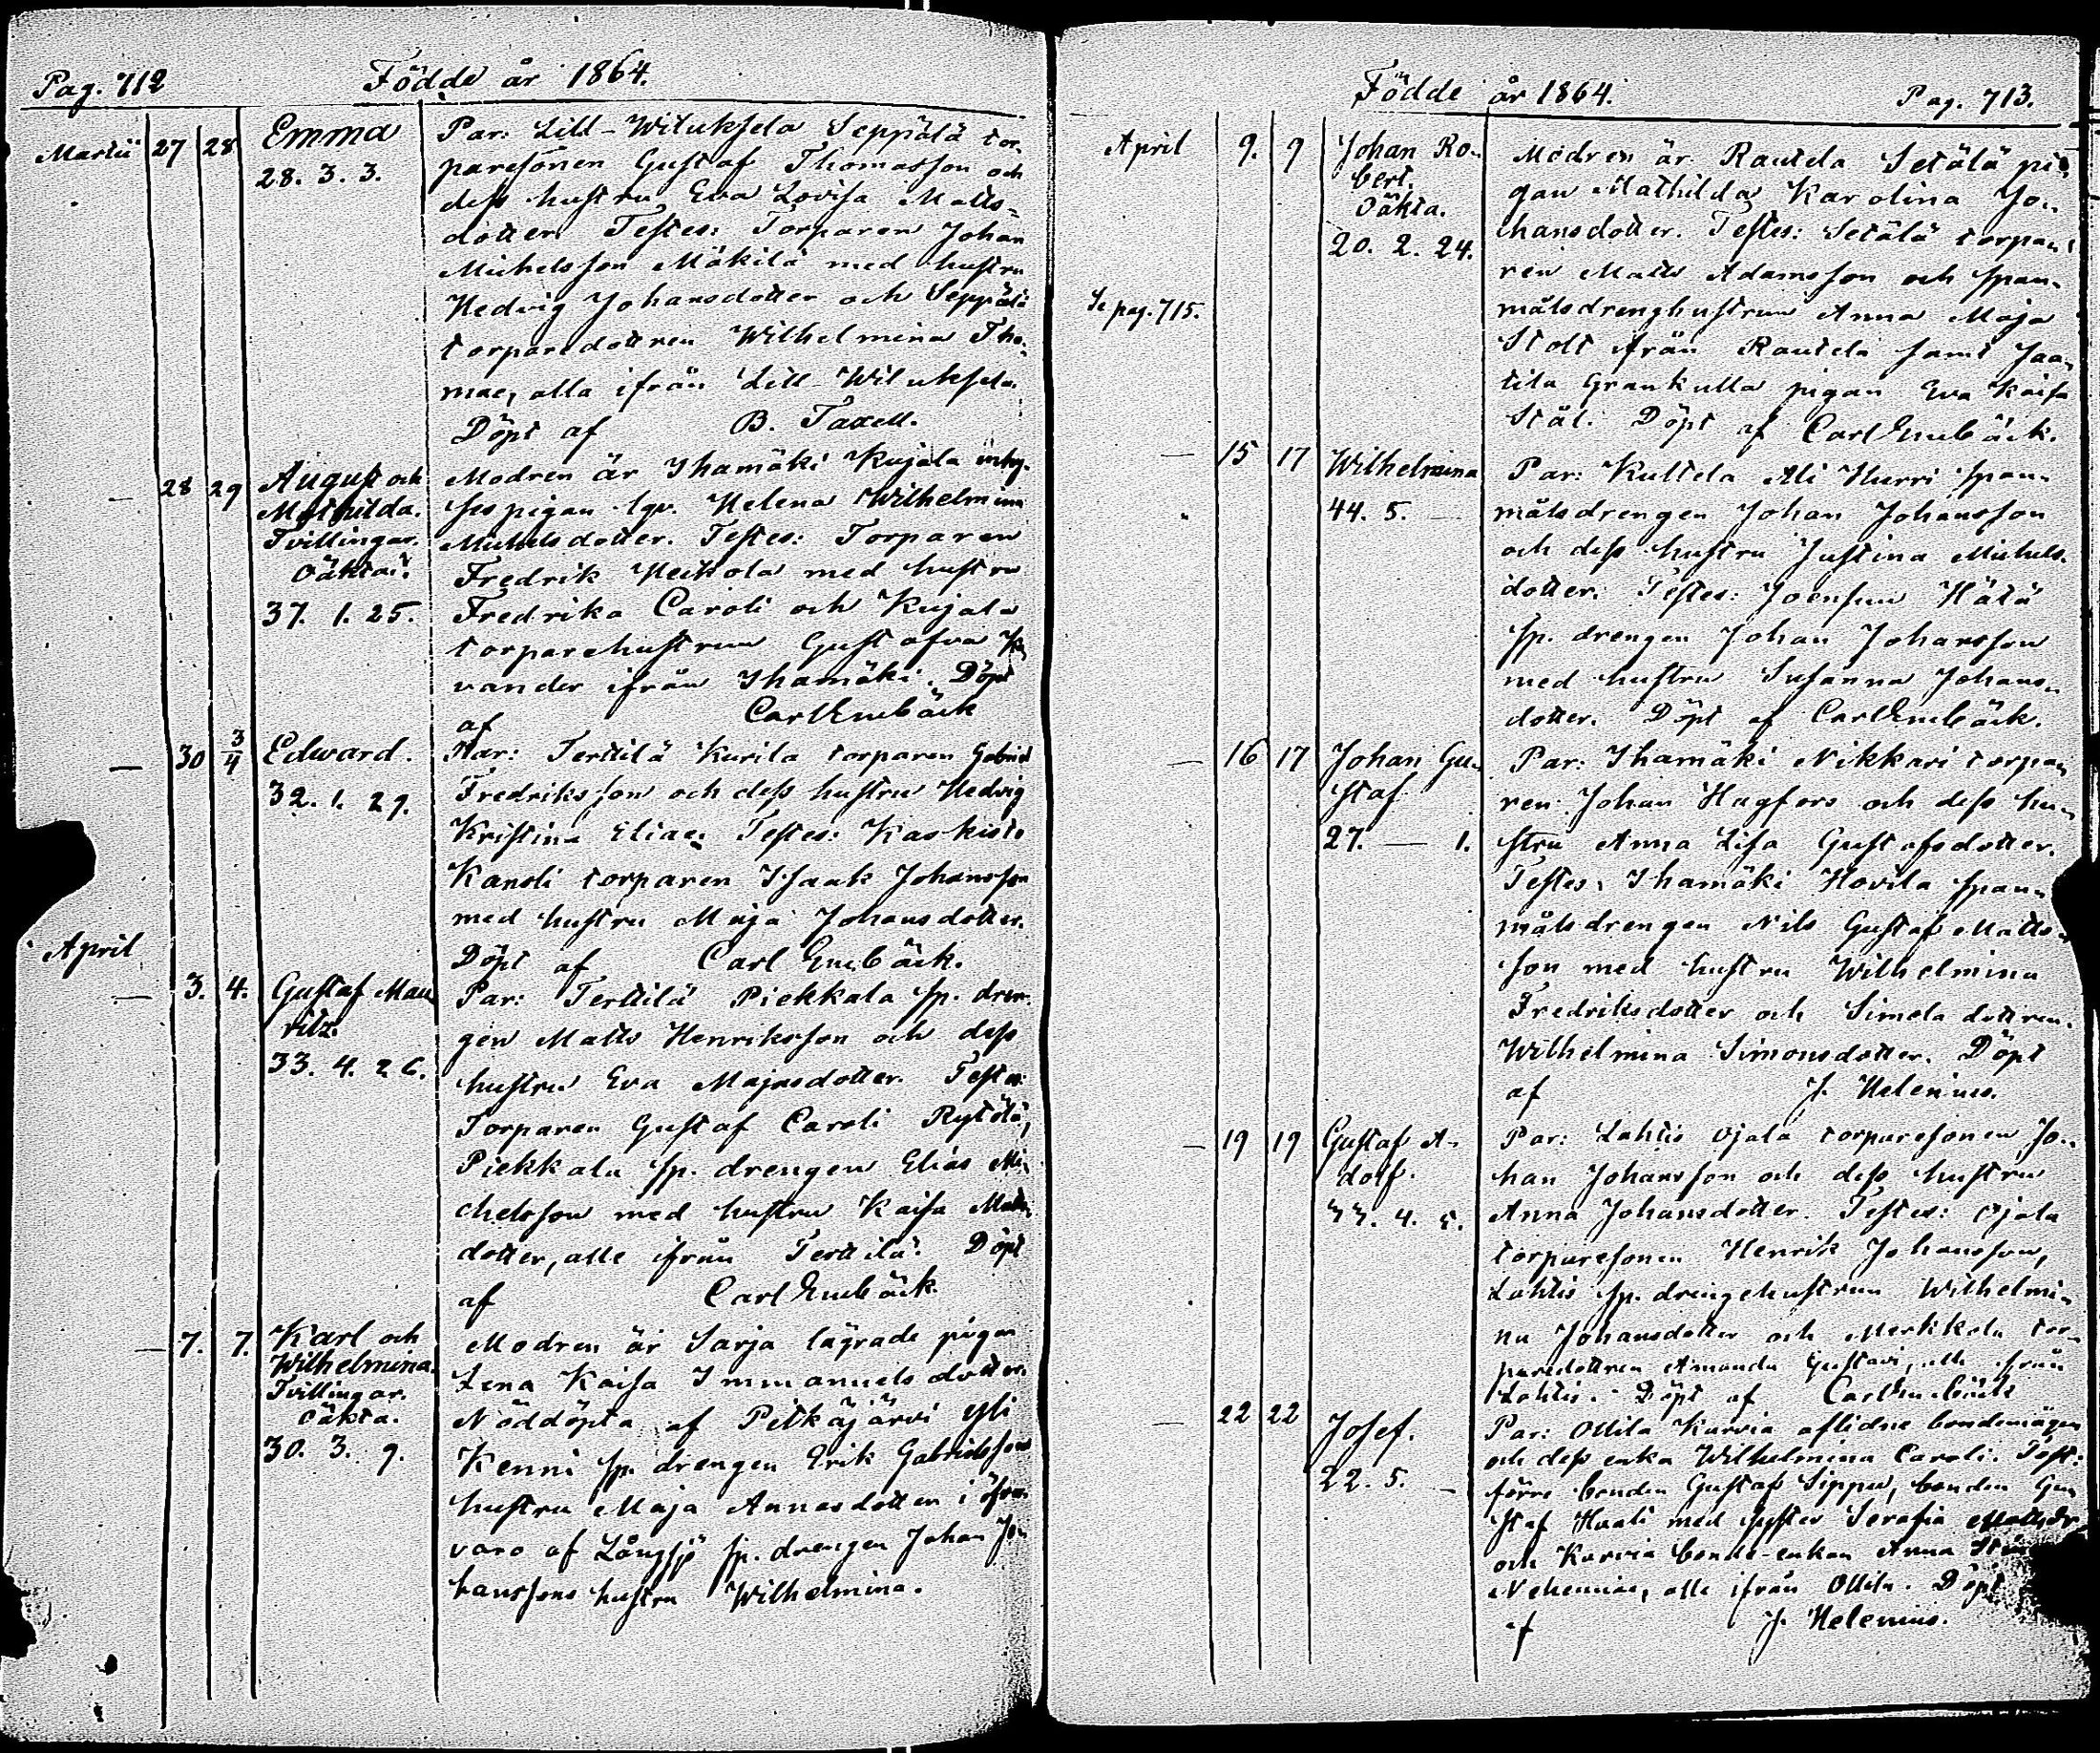 Pag. 712
Födde år 1864.
Martii 27 28 Emma
28. 3. 3.
Par: Lill-Wiluksela Seppälä tor-
paresonen Gustaf Thomasson och
dess hustru Eva Lovisa Matts-
dotter. Testes: Torparen Johan
Michelsson Mäkilä med hustru
Hedvig Johansdotter och Seppälä
torparedottren Wilhelmina Tho-
mae, alla ifrån Lill-Wiluksela.
Döpt af B. Taxell.
— 28 29 August och
Mathilda.
Tvillingar.
Oäkta.
37. 1. 25.
Modren är Ihamäki Kujala inhy-
ses pigan lgv. Helena Wilhelmina
Michelsdotter. Testes: Torparen
Fredrik Heikola med hustru
Fredrika Caroli och Kujala
torparehustrun Gustafva
vander ifrån Ihamäki. Döpt
af Carl Enebäck
— 30 3/4 Edward.
32. 1. 29.
Par: Terttilä Kurila torparen Gabriel
Fredriksson och dess hustru Hedvig
Kristina Eliae. Testes: Kaskisto
Kanoli torparen Isaak Johansson
med hustru Maja Johansdotter.
Döpt af Carl Enebäck.
April
— 3. 4. Gustaf Mau-
ritz.
33. 4. 26.
Par: Terttilä Piekkala sp. dren-
gen Matts Henriksson och dess
hustru Eva Majasdotter. Testes:
Torparen Gustaf Caroli Rytölä,
Piekkala sp. drengen Elias Mi-
chelsson med hustru Kaisa Matts-
dotter, alle ifrån Terttilä. Döpt
af Carl Enebäck.
— 7. 7. Karl och
Wilhelmina.
Tvillingar.
Oäkta.
30. 3. 9.
Modren är Sarja lägrade pigan
Lena Kaisa Immanuelsdotter.
Nöddöpta af Pitkäjärvi Yli
Kenni sp. drengen Erik Gabrielssons
hustru Maja Annasdotter i öfver
varo af Långsjö sp. drengen Johan Jo-
hanssons hustru Wilhelmina.
Födde år 1864.
Pag. 713.
April 9. 9 Johan Ro-
bert.
Oäkta.
20. 2. 24.
Se pag. 715.
Modren är Rautela Setälä pi-
gan Mathilda Karolina Jo-
hansdotter. Testes: Setälä torpa-
ren Matts Adamsson och span-
målsdrenghustrun Anna Maja
Stolt ifrån Rautela samt Jaa-
tila Grankulla pigan Eva Kaisa
Stål. Döpt af Carl Enebäck.
— 15 17 Wilhelmina
44. 5. —
Par: Kultela Ali Hurri span-
målsdrengen Johan Johansson
och dess hustru Justina Michels-
dotter. Testes: Joensuu Hätä
sp. drengen Johan Johansson
med hustru Susanna Johans-
dotter. Döpt af Carl Enebäck.
— 16 17 Johan Gu-
staf
27. — 1.
Par: Ihamäki Nikkari torpa-
ren Johan Hagfors och dess hu-
stru Anna Lisa Gustafsdotter.
Testes: Ihamäki Hovila span-
målsdrengen Nils Gustaf Matts-
son med hustru Wilhelmina
Fredriksdotter och Simola dottren
Wilhelmina Simonsdotter. Döpt
af J. Helenius.
— 19 19 Gustaf A-
dolf.
33. 4. 5.
Par: Lahtis Ojala torparesonen Jo-
han Johansson och dess hustru
Anna Johansdotter. Testes: Ojala
torparesonen Henrik Johansson,
Lahtis sp. drengehustrun Wilhelmi-
na Johansdotter och Merkkola tor-
paredottren Amanda Gustavi, alle ifrån
Lahtis. Döpt af Carl Enebäck
— 22 22 Josef.
22. 5. —
Par: Ollila Kurvia aflidne bondemågen
och dess enka Wilhelmina Caroli. Test:
förre bonden Gustaf Sippu, bonden Gu-
staf Huali med syster Serafia Mattsdr
och Kurvia bonde-enkan Anna
Nehemiae, alle ifrån Ollila. Döpt
af J. Helenius.